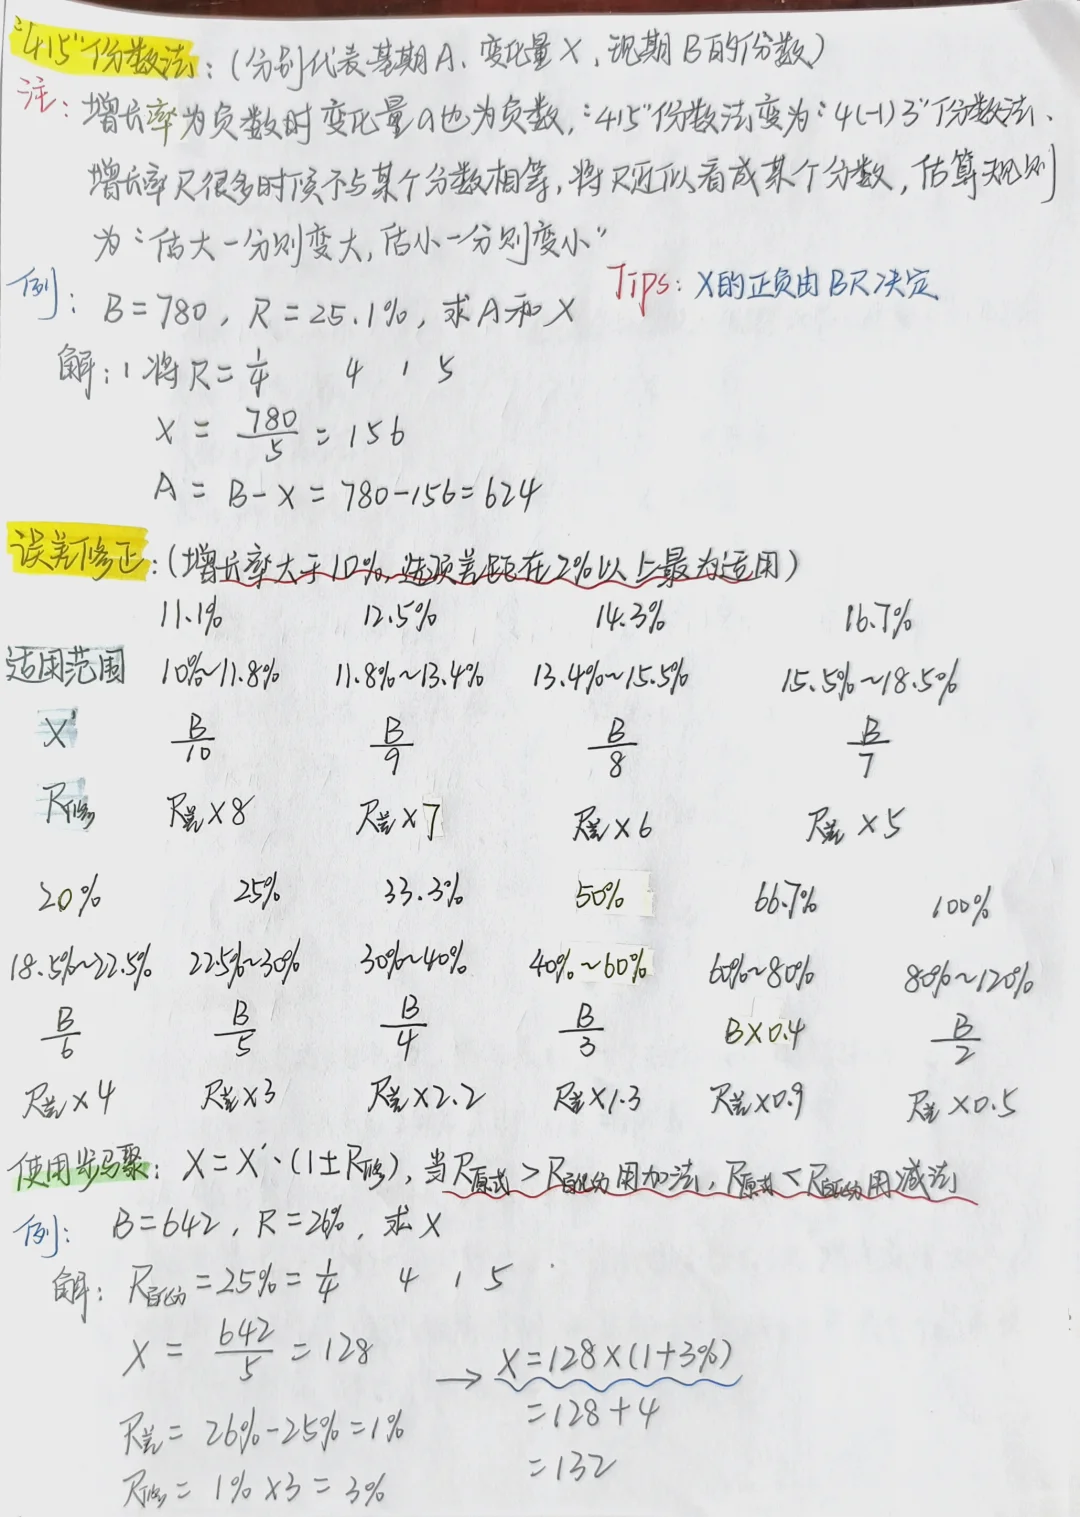 “415”份数法：(分别代表基期A、变化量X，现期B的份数)
注：增长率为负数时变化量a也为负数，“415”份数法变为“4(-1)3”份数法、
增长率R很多时候不与某个分数相等，将R近似看成某个分数，估算规则
为“估大一分则变大，估小一分则变小”
Tips：X的正负由BR决定
例：B=780，R=25.1%，求A和X
解：1将R=1/4 4 1 5
X = 780/5 = 156
A = B-X = 780-156=624
误差修正：(增长率大于10%，选项差距在2%以上最为适用)
11.1% 12.5% 14.3% 16.7%
适用范围 10%~11.8% 11.8%~13.4% 13.4%~15.5% 15.5%~18.5%
X' B/10 B/9 B/8 B/7
R修 R差×8 R差×7 R差×6 R差×5
20% 25% 33.3% 50% 66.7% 100%
18.5%~22.5% 22.5%~30% 30%~40% 40%~60% 60%~80% 80%~120%
B/6 B/5 B/4 B/3 B×0.4 B/2
R差×4 R差×3 R差×2.2 R差×1.3 R差×0.9 R差×0.5
使用步骤：X=X'·(1±R修)，当R原式>R百化分用加法，R原式<R百化分用减法
例：B=642，R=26%，求X
解：R百化分=25%=1/4 4 1 5
X = 642/5 = 128
R差= 26%-25%=1%
R修= 1%×3=3%
→ X=128×(1+3%)
=128+4
=132